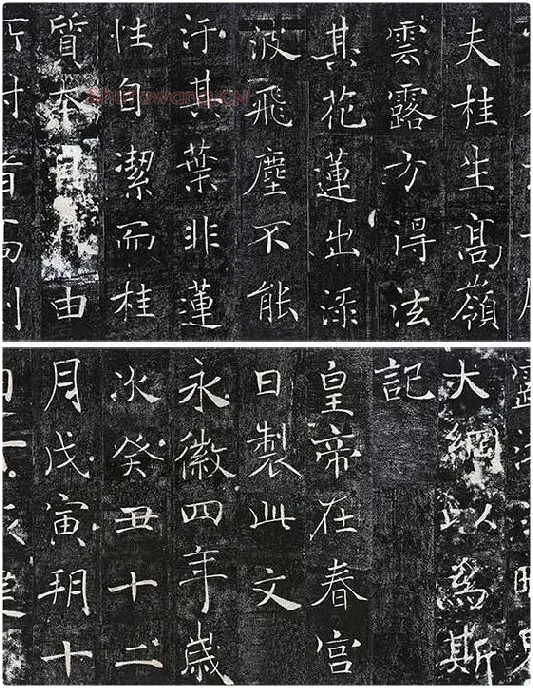 夫桂生高嶺
雲露方得泫
其花蓮出渌
波飛塵不能
汙其葉非蓮
性自潔而桂
質本由
大綱以為斯
記
皇帝在春宮
日製此文
永徽四年歲
次癸丑十二
月戊寅朔十